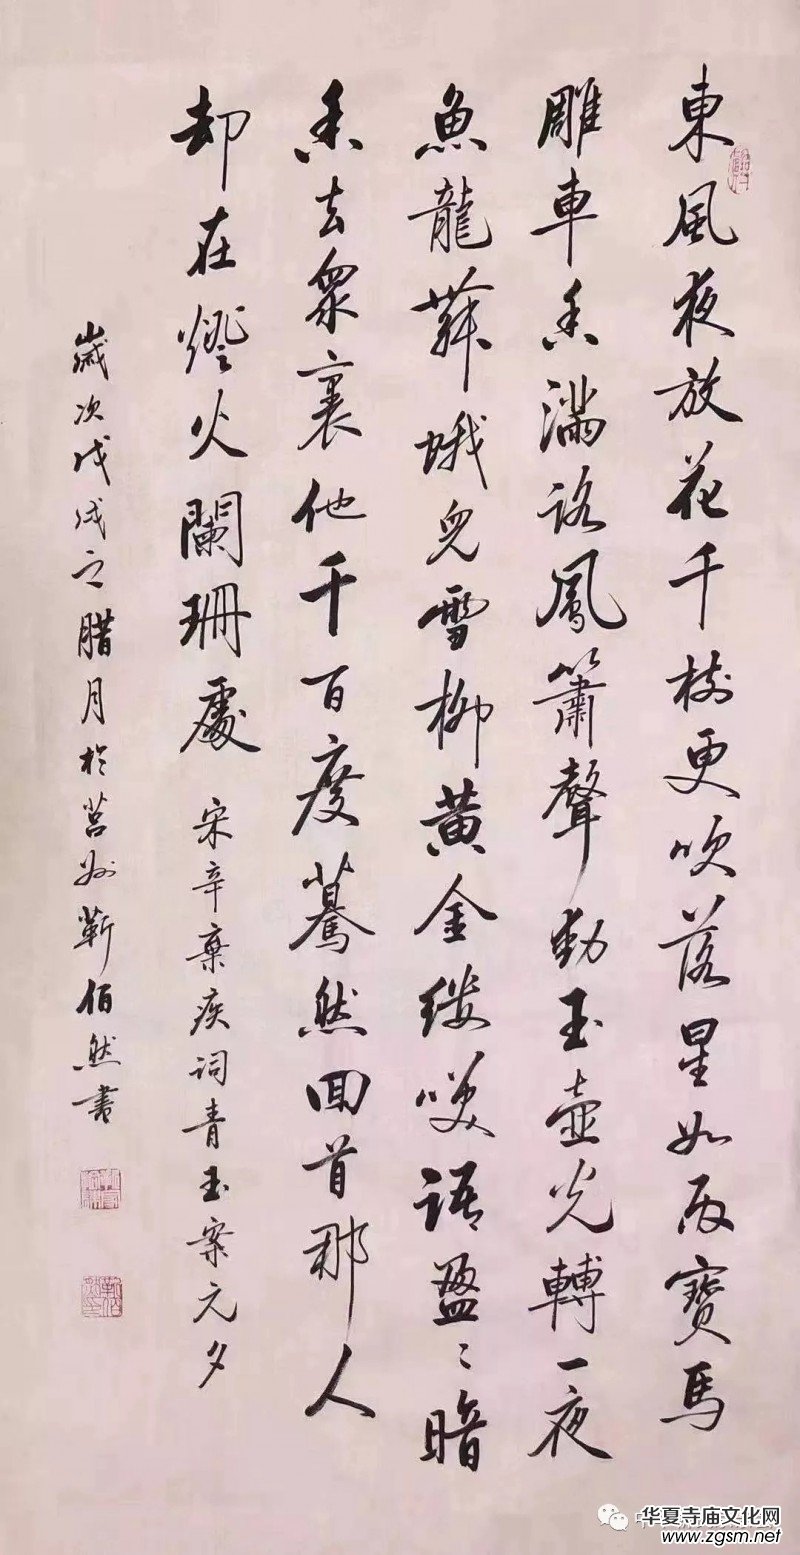 東風夜放花千樹更吹落星如雨寶馬
雕車香滿路鳳簫聲動玉壺光轉一夜
魚龍舞蛾兒雪柳黃金縷咲語盈〻暗
香去眾裏他千百度驀然回首那人
却在燈火闌珊處
宋辛棄疾詞青玉案元夕
歲次戊戌之腊月於莒州靳佰然書
华夏寺庙文化网
www.zgsm.net